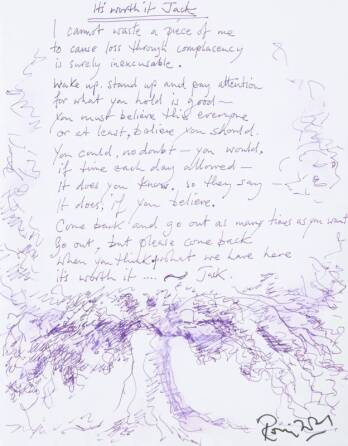 It's worth it Jack
I cannot waste a piece of me
to cause loss through complacency
is surely inexcusable.
Wake up, stand up and pay attention
for what you hold is good —
You must believe this everyone
or at least, believe you should.
You could, no doubt — you would,
if time each day allowed —
It does you know, so they say —
It does, if you believe.
Come back and go out as many times as you want
Go out, but please come back
when you think what we have here
its worth it .... ~ Jack.